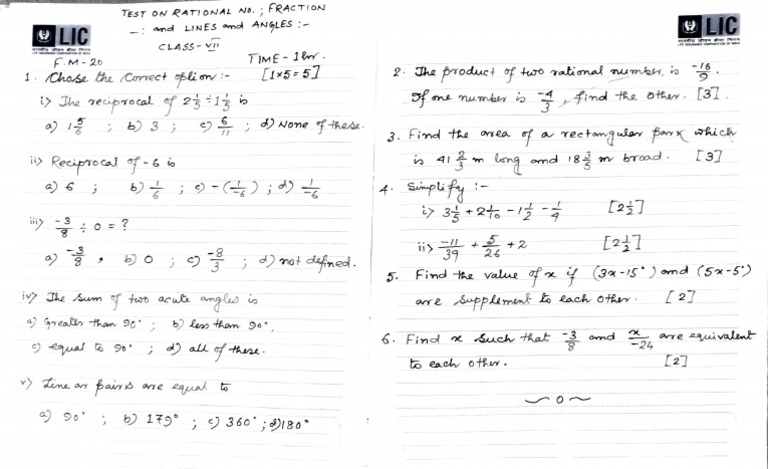 TEST ON RATIONAL NO.; FRACTION
-: and LINES and ANGLES:-
CLASS-VII
F.M-20
TIME-1hr.
LIC
भारतीय जीवन बीमा निगम
LIFE INSURANCE CORPORATION OF INDIA
1. Chose the correct option:- [1×5=5]
i) The reciprocal of 2 1/5 ÷ 1 1/5 is
a) 1 5/6 ; b) 3 ; c) 6/11 ; d) None of these.
ii) Reciprocal of -6 is
a) 6 ; b) 1/6 ; c) -(1/-6) ; d) 1/-6
iii) -3/8 ÷ 0 = ?
a) -3/8 , b) 0 ; c) -8/3 ; d) not defined.
iv) The sum of two acute angles is
a) Greater than 90° ; b) less than 90°,
c) equal to 90° ; d) all of these.
v) Line ar pairs are equal to
a) 90° ; b) 179° ; c) 360° ; d) 180°
LIC
2. The product of two rational number is -16/9
If one number is -4/3, find the other. [3]
3. Find the area of a rectangular park which
is 41 2/3 m long and 18 3/5 m broad. [3]
4. Simplify :-
i) 3 1/5 + 2 1/10 - 1 1/2 - 1/4 [2 1/2]
ii) -11/39 + 5/26 + 2 [2 1/2]
5. Find the value of x if (3x-15°) and (5x-5°)
are supplement to each other. [2]
6. Find x such that -3/8 and x/-24 are equivalent
to each other. [2]